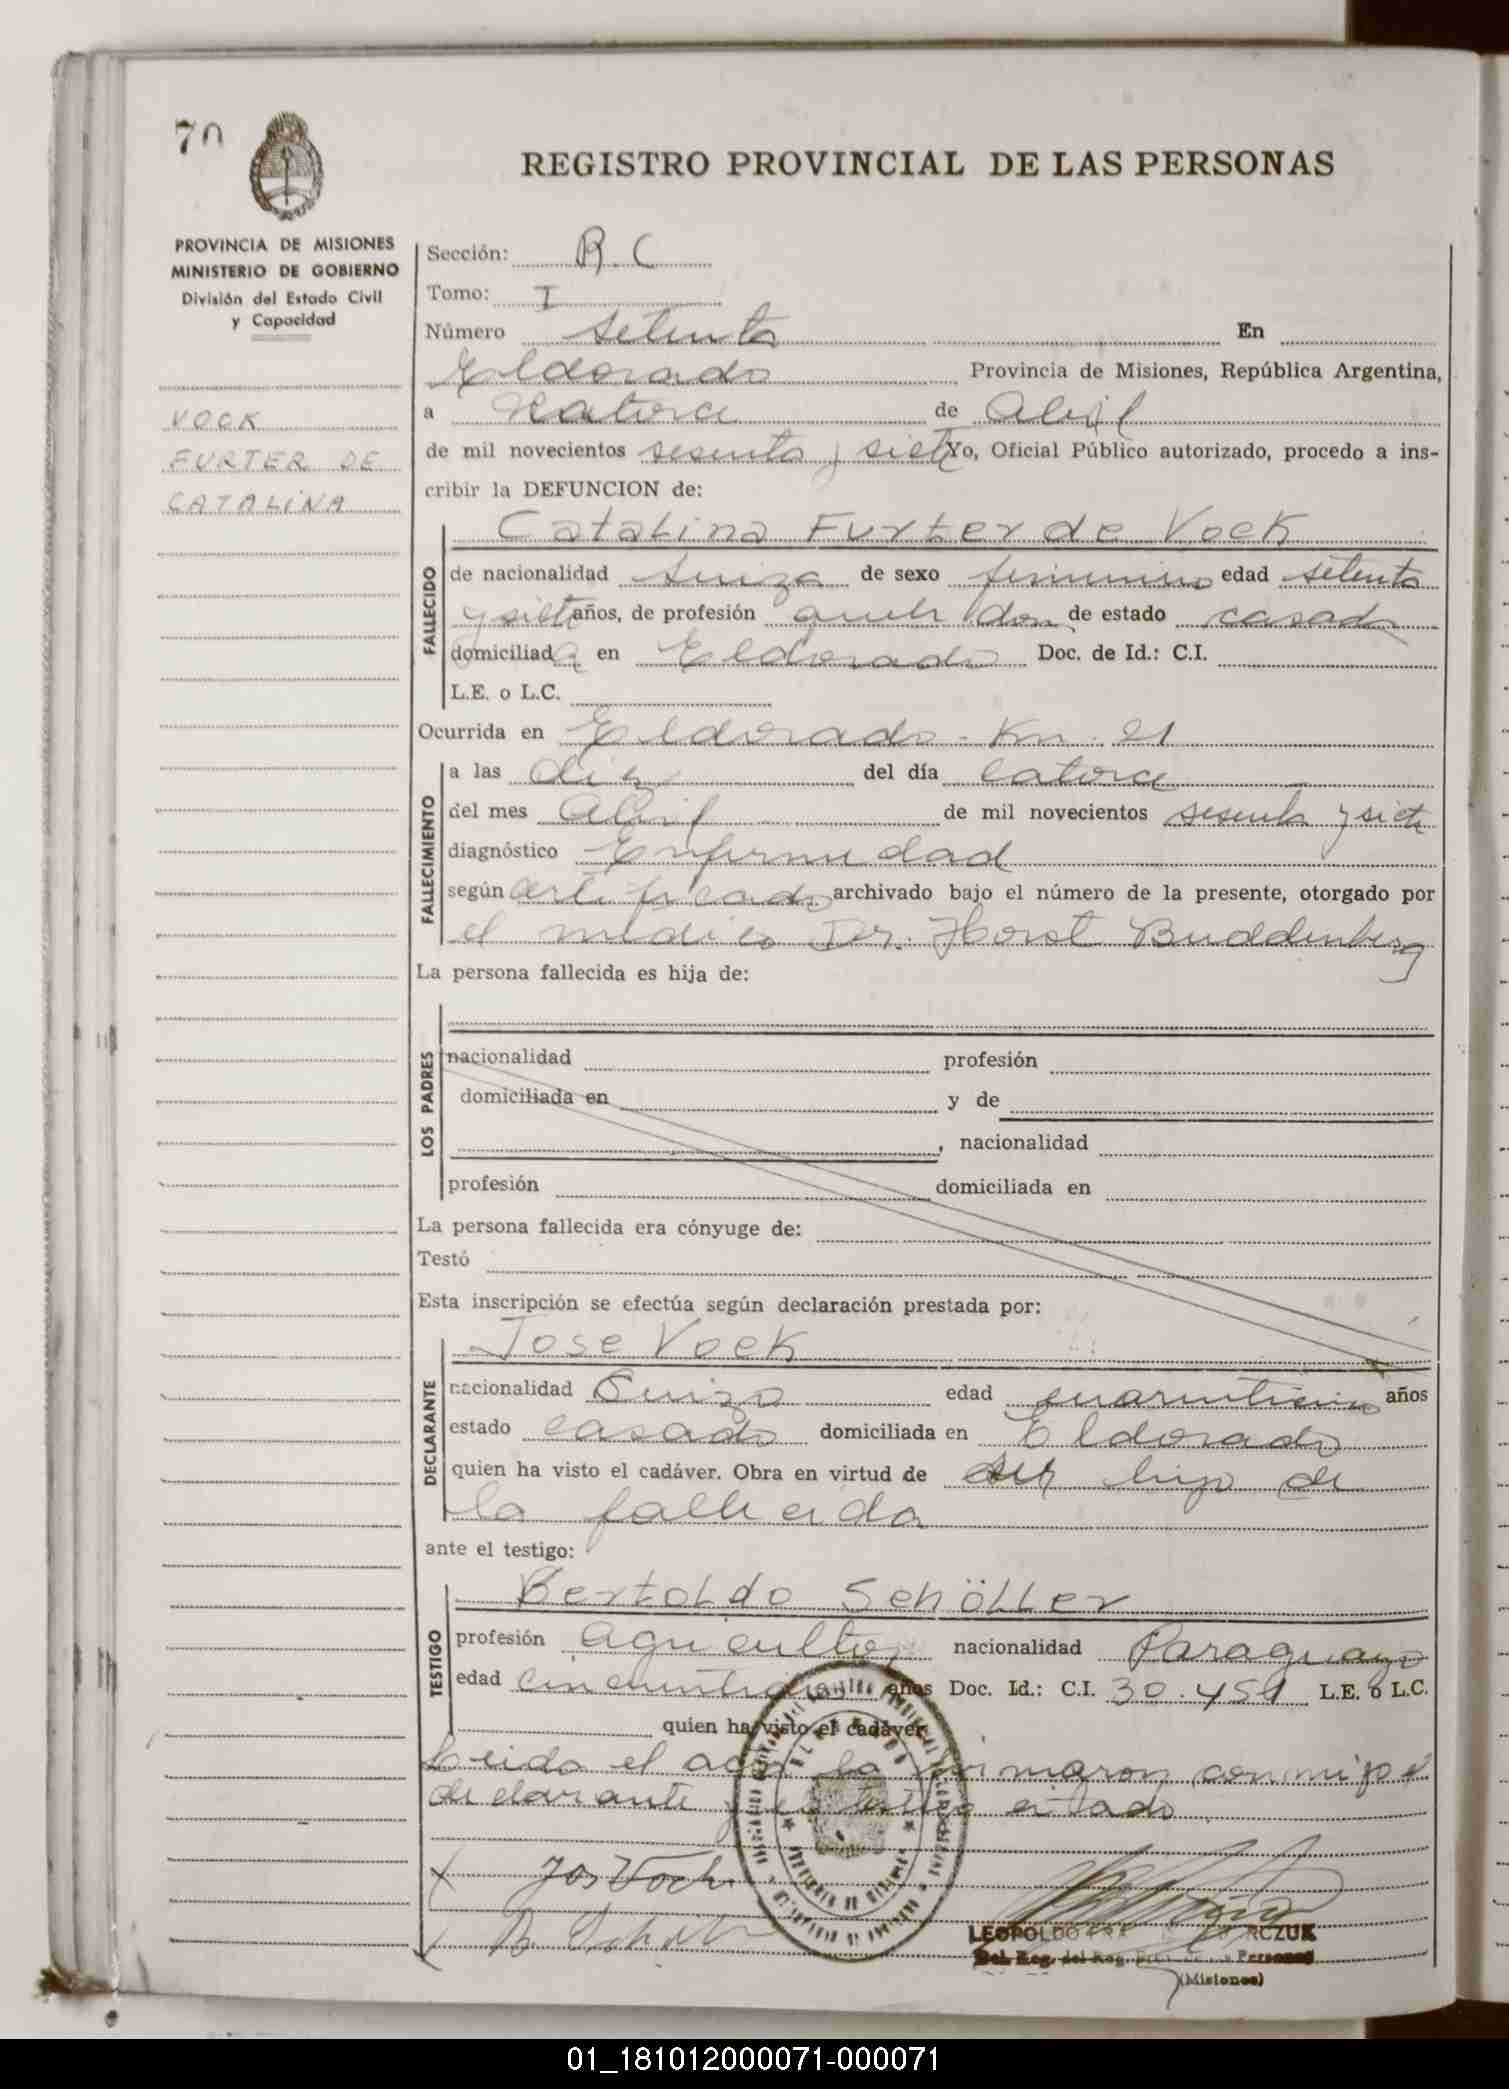 70
REGISTRO PROVINCIAL DE LAS PERSONAS
PROVINCIA DE MISIONES
MINISTERIO DE GOBIERNO
División del Estado Civil
y Capacidad
VOCK
FURTER DE
CATALINA
Sección: R.C
Tomo: I
Número setenta En
Eldorado Provincia de Misiones, República Argentina,
a Catorce de Abril
de mil novecientos sesenta y siete Yo, Oficial Público autorizado, procedo a ins-
cribir la DEFUNCION de:
Catalina Furter de Vock
FALLECIDO
de nacionalidad suiza de sexo femenino edad setenta
y siete años, de profesión queh. dom. de estado casada
domiciliada en Eldorado Doc. de Id.: C.I.
L.E. o L.C.
Ocurrida en Eldorado - Km. 21
FALLECIMIENTO
a las diez del día catorce
del mes Abril de mil novecientos sesenta y siete
diagnóstico Enfermedad
según certificado archivado bajo el número de la presente, otorgado por
el médico Dr. Horst Buddenberg
La persona fallecida es hija de:
LOS PADRES
nacionalidad profesión
domiciliada en y de
, nacionalidad
profesión domiciliada en
La persona fallecida era cónyuge de:
Testó
Esta inscripción se efectúa según declaración prestada por:
Jose Vock
DECLARANTE
nacionalidad Suizo edad años
estado casado domiciliada en Eldorado
quien ha visto el cadáver. Obra en virtud de ser hijo de
la fallecida
ante el testigo:
Bertoldo Schöller
TESTIGO
profesión agricultor nacionalidad Paraguayo
edad años Doc. Id.: C.I. 30.451 L.E. o L.C.
quien ha visto el cadáver
Leida el acta la firmaron conmigo el
declarante y el testigo citado
Jos Vock
LEOPOLDO RCZUK
Del. Reg. del Reg. Personas
(Misiones)
01_181012000071-000071